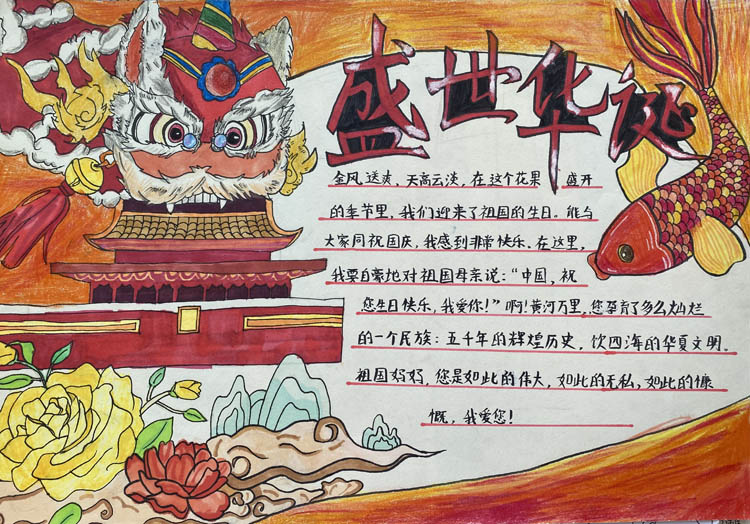 盛世华诞
金风送爽，天高云淡，在这个花果 盛开
的季节里，我们迎来了祖国的生日。能与
大家同祝国庆，我感到非常快乐。在这里，
我要自豪地对祖国母亲说：“中国，祝
您生日快乐，我爱你！”啊！黄河万里，您孕育了多么灿烂
的一个民族：五千年的辉煌历史，饮四海的华夏文明。
祖国妈妈，您是如此的伟大，如此的无私，如此的慷
慨，我爱您！